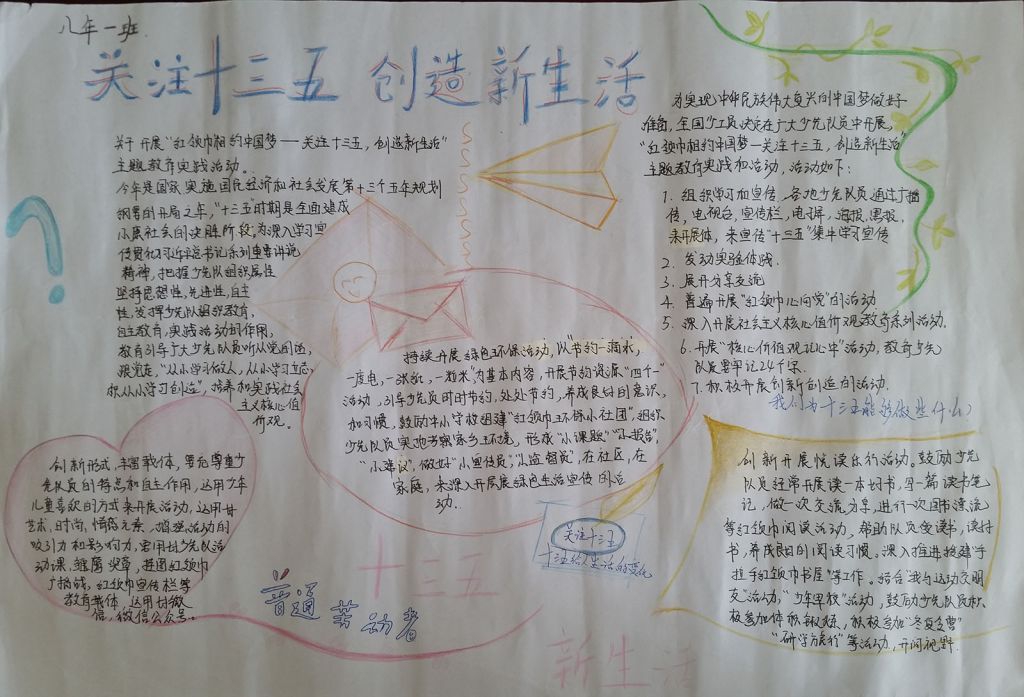 八年一班
关注十三五 创造新生活
关于开展“红领巾相约中国梦——关注十三五，创造新生活”
主题教育实践活动。
今年是国家实施国民经济和社会发展第十三个五年规划
纲要的开局之年，“十三五”时期是全面建成
小康社会的决胜阶段，为深入学习宣
传贯彻习近平总书记系列重要讲话
精神，把握少先队组织属性
坚持思想性，先进性，自主
性，发挥少先队组织教育，
自主教育，实践活动的作用，
教育引导广大少先队员听从党的话，
跟党走，“从小学习做人，从小学习立志，
从小学习创造”，培养和实践社会
主义核心价值
价观。
为实现中华民族伟大复兴的中国梦做好
准备，全国少工委决定在广大少先队员中开展，
“红领巾相约中国梦—关注十三五，创造新生活”
主题教育实践和活动，活动如下：
1. 组织学习加宣传，各地少先队员通过广播
传，电视台，宣传栏，电子屏，海报，黑报，
来开展体，来宣传“十三五”集中学习宣传
2. 发动实验体践.
3. 展开分享交流
4. 普遍开展“红领巾心向党”的活动
5. 深入开展社会主义核心价值观教育系列活动.
6. 开展“核心价值观记心中”活动，教育少先
队员要牢记24个字.
7. 积极开展创新创造的活动.
我们为十三五能够做些什么
持续开展绿色环保活动，以“节约一滴水，
一度电，一张纸，一粒米”为基本内容，开展节约资源“四个一”
活动，引导少先队员时时节约，处处节约，养成良好的意识，
和习惯，鼓励中小学校组建“红领巾环保小社团”，组织
少先队员实地考察家乡环境，形成“小课题”“小报告”，
“小建议”，做好“小宣传员”，“小监督员”，在社区，在
家庭，来深入开展展绿色生活宣传的活
动.
创新形式，丰富载体，要充尊重少
先队员的特点和自主作用，运用少年
儿童喜欢的方式来开展活动，运用甘
艺术，时尚，情感元素，增强活动的
吸引力和影响力，要用好少先队活
动课，雏鹰奖章，校园红领巾
广播站，红领巾宣传栏等
教育载体，运用好微
信，微信公众号。
创新开展悦读乐行活动。鼓励少先
队员经常开展读一本好书，写一篇读书笔
记，做一次交流分享，进行一次图书漂流
等红领巾阅读活动，帮助队员爱读书，读好
书，养成良好的阅读习惯。深入推进援建“手
拉手红领巾书屋”等工作。结合“我行运动交朋
友”活动，“少年军校”活动，鼓励少先队员积
极参加体育锻炼，积极参加“冬夏令营”
“研学旅行”等活动，开阔视野.
关注十三五
十三五给人生活的变化
十三五
普通劳动者
新生活